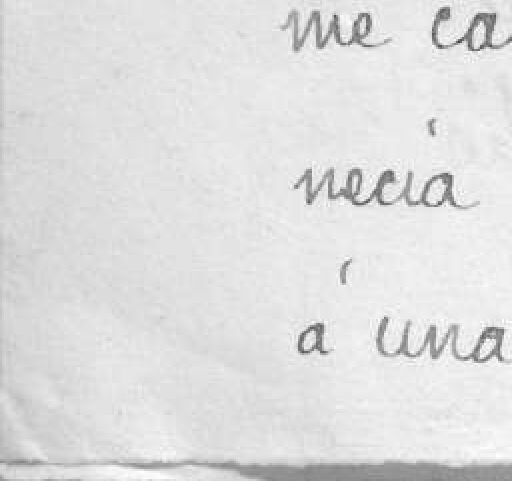 me ca
necía
á una